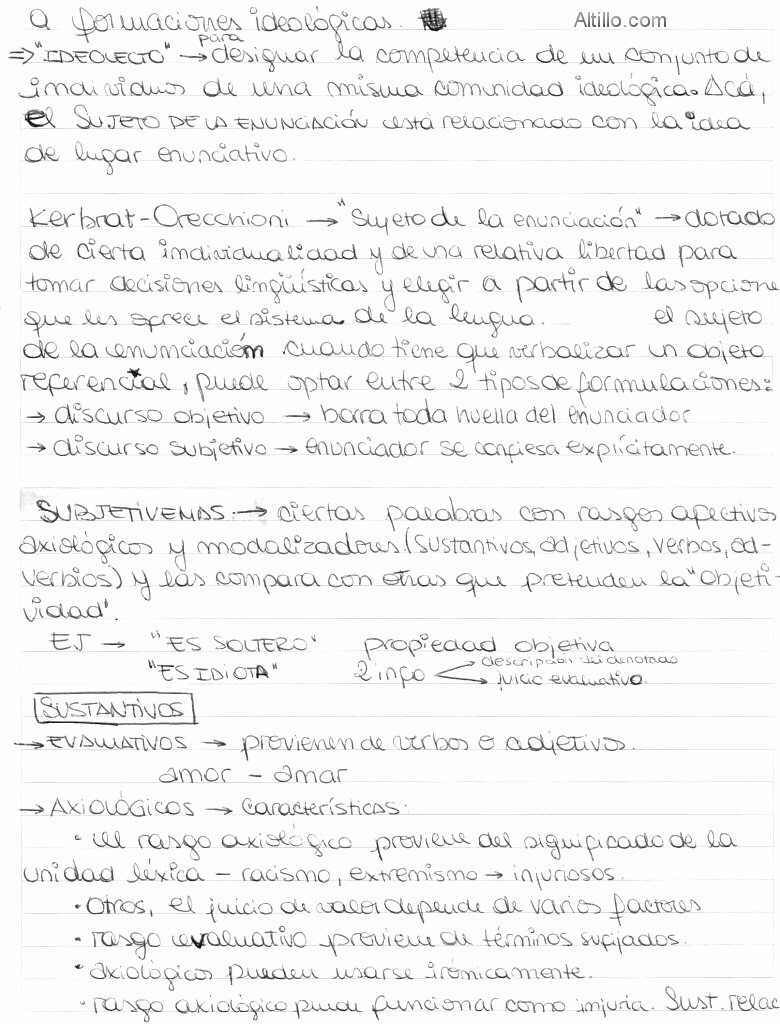 a formaciones ideológicas. Altillo.com
⇒ "IDEOLECTO" → para designar la competencia de un conjunto de
individuos de una misma comunidad ideológica. Acá,
el SUJETO DE LA ENUNCIACIÓN está relacionado con la idea
de lugar enunciativo.
Kerbrat-Orecchioni → "Sujeto de la enunciación" → dotado
de cierta individualidad y de una relativa libertad para
tomar decisiones lingüísticas y elegir a partir de las opcione
que les oprece el sistema de la lengua. el sujeto
de la enunciación cuando tiene que verbalizar un objeto
referencial, puede optar entre 2 tipos de formulaciones:
→ discurso objetivo → borra toda huella del enunciador
→ discurso subjetivo → enunciador se confiesa explícitamente.
SUBJETIVEMAS → ciertas palabras con rasgos afectivos
axiológicos y modalizadores (sustantivos, adjetivos, verbos, ad-
verbios) y las compara con otras que pretenden la "objeti-
vidad".
EJ → "ES SOLTERO" propiedad objetiva
"ES IDIOTA" 2 info descripción del denotado
→ juicio evaluativo.
SUSTANTIVOS
→ EVALUATIVOS → provienen de verbos o adjetivos.
amor - amar
→ AXIOLÓGICOS → características:
• el rasgo axiológico proviene del significado de la
unidad léxica - racismo, extremismo → injuriosos.
• Otros, el juicio de valor depende de varios factores
• rasgo evaluativo proviene de términos sufijados.
• axiológicos pueden usarse irónicamente.
• rasgo axiológico puede funcionar como injuria. Sust. relac